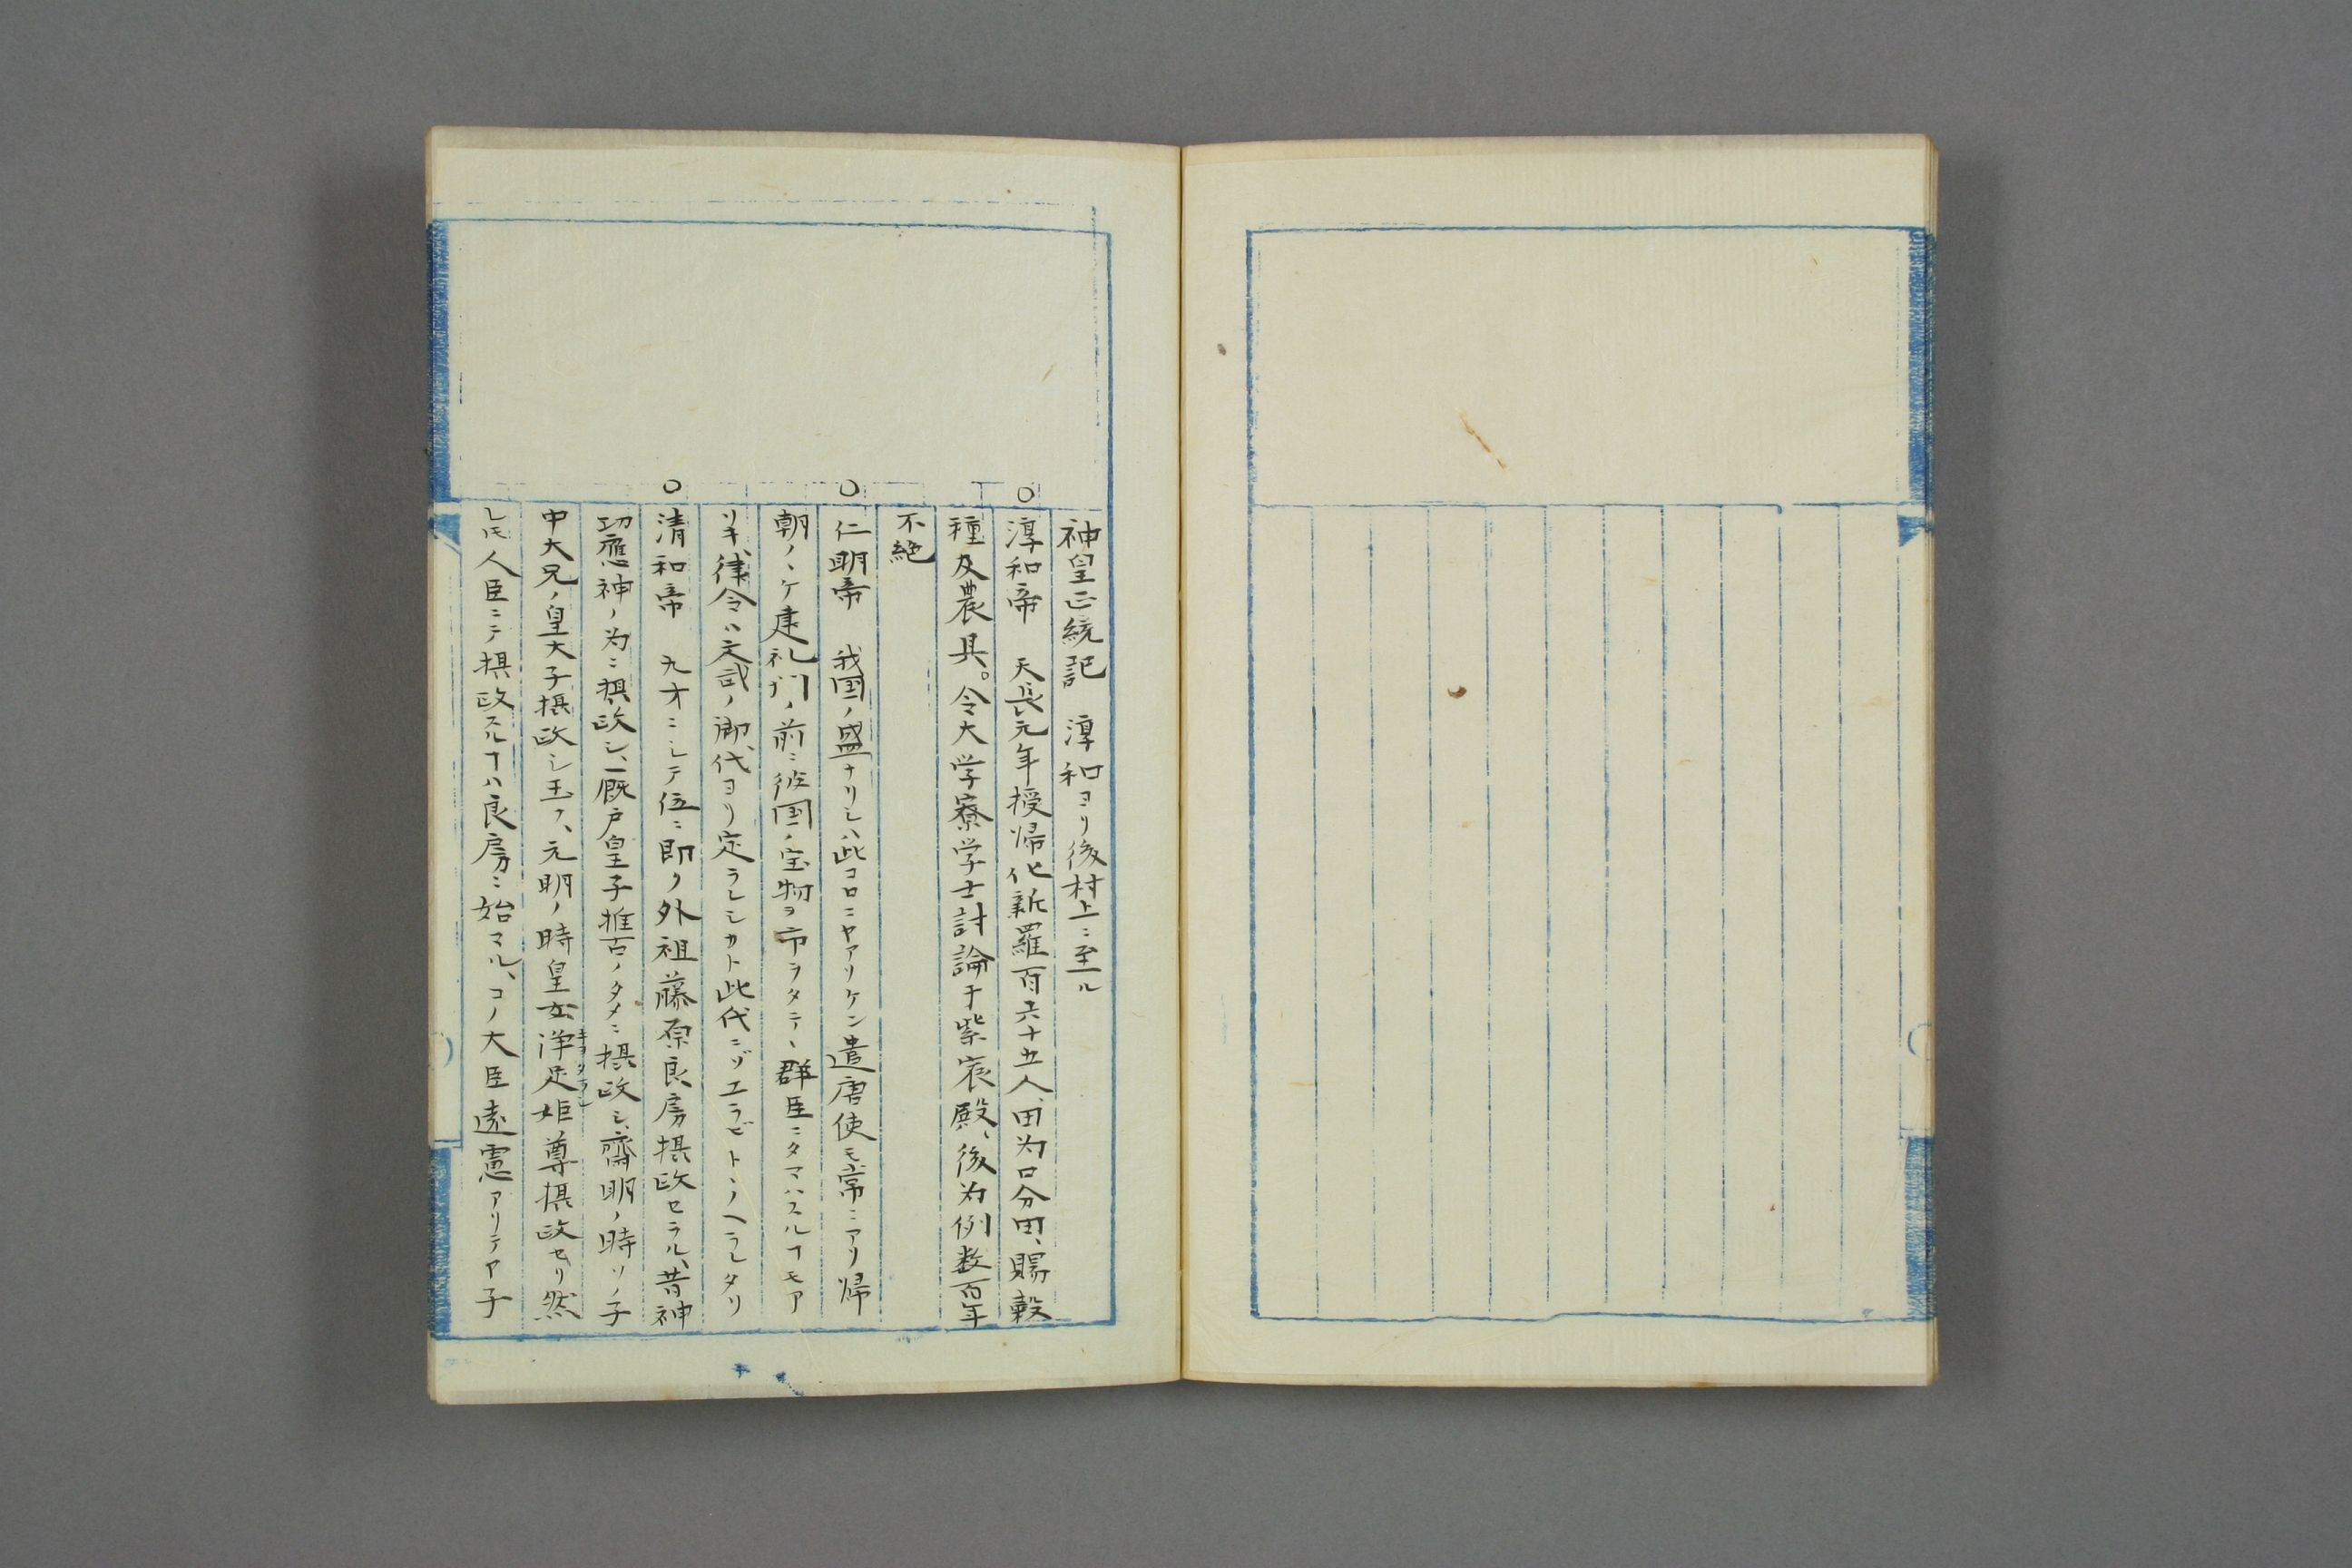 神皇正統記　淳和ヨリ後村上ニ至ル
○淳和帝　天長元年授帰化新羅百六十五人、田为口分田、賜穀
種及農具。令大学寮学士討論于紫宸殿、後为例数百年
不絶
○仁明帝　我国ノ盛ナリシハ此コロニヤアリケン遣唐使モ常ニアリ帰
朝ノヽケ建礼門ノ前ニ彼国ノ宝物ヲ市ヲタテヽ群臣ニタマハスルヿモア
リキ、律令ハ文武ノ御代ヨリ定ラレシカト此代ニゾエラビトヽノヘラレタリ
○清和帝　九才ニシテ位ニ即ク外祖藤原良房摂政セラル、昔神
功應神ノ为ニ摂政シ、厩戸皇子推古ノタメニ摂政シ、齋明ノ時ソノ子
中大兄ノ皇大子摂政シ玉フ、元明ノ時皇女浄足姫尊摂政セリ然
レ𪜈人臣ニテ摂政スルヿハ良房ニ始マル、コノ大臣遠慮アリテヤ子